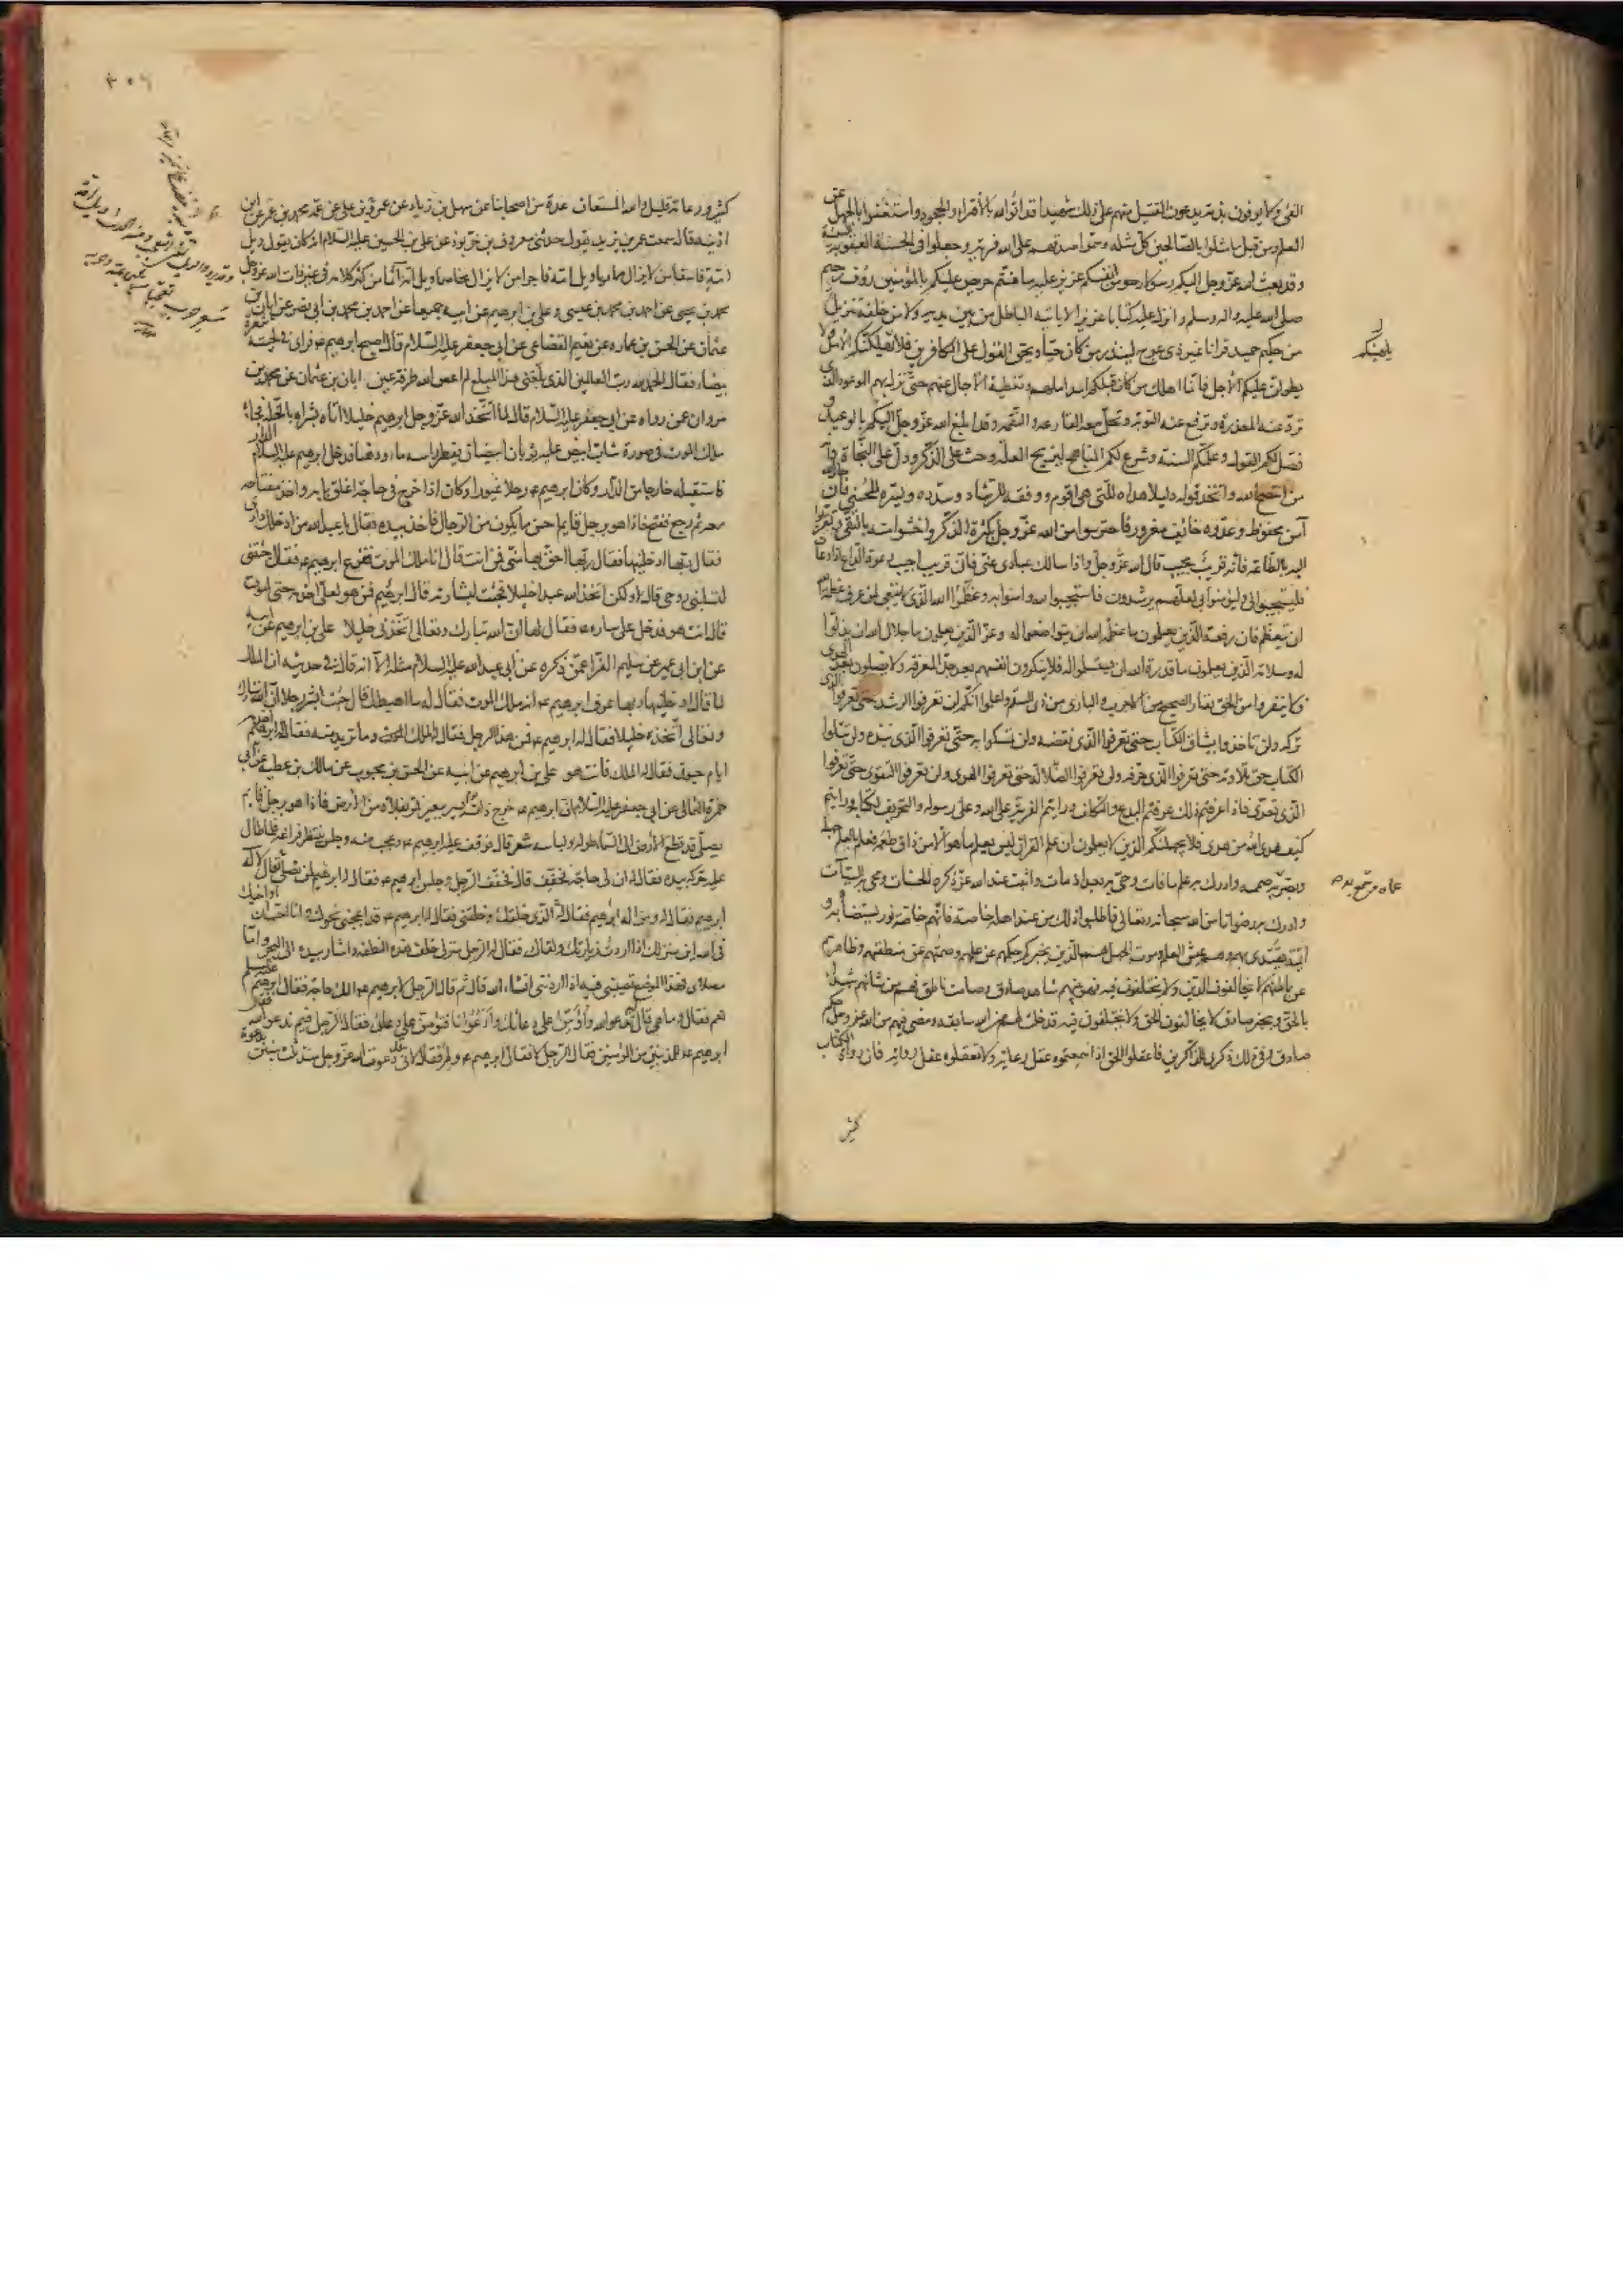 الغي ولا يوفون بذر تريدعون القتيل منهم على ذلك شهيدا قد اتوا الله بالافتراء والجحود واستغنوا بالجهل عن
العلم ومن قبل ما مثلوا بالصالحين كل مثله وسموا صدقهم على الله فرية وجعلوا فى الحسنة العقوبة السيئة
وقد بعث الله عز وجل اليكم رسولا من انفسكم عزيز عليه ما عنتم حريص عليكم بالمؤمنين رؤف رحيم
صلى الله عليه واله وسلم وانزل عليه كتابا عزيزا لا ياتيه الباطل من بين يديه ولا من خلفه تنزيل
من حكيم حميد قرانا غير ذى عوج لينذر من كان حيا ويحق القول على الكافرين فلا يلهينكم الامل ولا
يطولن عليكم الاجل فانما اهلك من كان قبلكم امد املهم وتغطية الاجال عنهم حتى نزل بهم الموعود الذى
ترد عنه المعذرة وترفع عنه التوبة وتحل معه القارعة والنقمة وقد ابلغ الله عز وجل اليكم بالوعيد و
فصل لكم القول وعلمكم السنة وشرع لكم المناهج ليزيح العلة وحث على الذكر ودل على النجاة وانه
من انتصح الله واتخذ قوله دليلا هداه للتى هى اقوم ووفقه للرشاد وسدده ويسره للحسنى فان جار الله
آمن محفوظ وعدوه خائف مغرور فاحترسوا من الله عز وجل بكثرة الذكر واخشوا منه بالتقى وتقربوا
اليه بالطاعة فانه قريب مجيب قال الله عز وجل واذا سالك عبادى عنى فانى قريب اجيب دعوة الداع اذا دعان
فليستجيبوا لى وليؤمنوا بى لعلهم يرشدون فاستجيبوا لله وامنوا به وعظموا الله الذى لا ينبغى لمن عرف عظمة الله
ان يتعظم فان رفعة الذين يعلمون ما عظمة الله ان يتواضعوا له وعز الذين يعلمون ما جلال الله ان يذلوا
له وسلامة الذين يعلمون ما قدرة الله ان يستسلموا له فلا ينكرون انفسهم بعد حد المعرفة ولا يضلون بعد الهدى
ولا ينفروا من الحق نفار الصحيح من الاجرب والبارى من ذى السقم واعلموا انكم لن تعرفوا الرشد حتى تعرفوا الذى
تركه ولن تاخذوا بميثاق الكتاب حتى تعرفوا الذى نقضه ولن تمسكوا به حتى تعرفوا الذى نبذه ولن تتلوا
الكتاب حق تلاوته حتى تعرفوا الذى حرفه ولن تعرفوا الضلالة حتى تعرفوا الهدى ولن تعرفوا التقوى حتى تعرفوا
الذى تعدى فاذا عرفتم ذلك عرفتم البدع والتكلف ورايتم الفرية على الله وعلى رسوله والتحريف لكتابه ورايتم
كيف هدى الله من هدى فلا يجهلنكم الذين لا يعلمون ان علم القران ليس يعلم ما هو الا من ذاق طعمه فعلم بالعلم جهله
وبصر به عماه وسمع به صممه وادرك به علم ما فات وحيى به بعد اذ مات واثبت عند الله عز ذكره الحسنات ومحى به السيات
وادرك به رضوانا من الله سبحانه وتعالى فاطلبوا ذلك من عند اهله خاصة فانهم خاصة نور يستضاء به و
ائمة يقتدى بهم وهم عيش العلم وموت الجهل هم الذين يخبركم حكمهم عن علمهم وصمتهم عن منطقهم وظاهرهم
عن باطنهم لا يخالفون الدين ولا يختلفون فيه فهو بينهم شاهد صادق وصامت ناطق فهم من شانهم شهداء
بالحق ومخبر صادق لا يخالفون الحق ولا يختلفون فيه قد خلت لهم من الله سابقة ومضى فيهم من الله عز وجل حكم
صادق وفى ذلك ذكرى للذاكرين فاعقلوا الحق اذا سمعتموه عقل رعاية ولا تعقلوه عقل رواية فان رواة الكتاب
كثير
يلهينكم
عماه وسمع به صممه
٣٠٦
كثير ورعاته قليل والله المستعان عدة من اصحابنا عن سهل بن زياد عن عمرو بن على عن عمه محمد بن عمر عن ابن
اذينة قال سمعت عمر بن يزيد يقول حدثنى معروف بن خربوذ عن على بن الحسين عليه السلام انه كان يقول ويل
امة فاسقا من لا يزال مماريا ويل امة فاجرا من لا يزال مخاصما ويل امه آثما من كثر كلامه فى غير ذات الله عز وجل
محمد بن يحيى عن احمد بن محمد بن عيسى وعلى بن ابرهيم عن ابيه جميعا عن احمد بن محمد بن ابى نصر عن ابان بن
عثمان عن الحسن بن عماره عن نعيم القضاعى عن ابى جعفر عليه السلام قال اصبح ابرهيم ع فراى فى لحيته شعرة
بيضاء فقال الحمد لله رب العالمين الذى بلغنى هذا المبلغ لم اعص الله طرفة عين ابان بن عثمان عن محمد بن
مروان عمن رواه عن ابى جعفر عليه السلام قال لما اتخذ الله عز وجل ابرهيم خليلا اتاه بشراه بالخلة فجاءه
ملك الموت فى صورة شاب ابيض عليه ثوبان ابيضان يقطر راسه ماء ودهنا فدخل ابرهيم عليه السلام الدار
فاستقبله خارجا من الدار وكان ابرهيم ع رجلا غيورا وكان اذا خرج فى حاجة اغلق بابه واخذ مفتاحه
معه ثم رجع ففتح فاذا هو برجل قايم احسن ما يكون من الرجال فاخذ بيده فقال يا عبد الله من ادخلك دارى
فقال ربها ادخلنيها فقال ربها احق بها منى فمن انت قال انا ملك الموت ففزع ابرهيم ع فقال جئتنى
لتسلبنى روحى قال لا ولكن اتخذ الله عبدا خليلا فجئت لبشارته قال ابرهيم فمن هو لعلى اخدمه حتى اموت
قال انت هو فدخل على ساره ع فقال لها ان الله تبارك وتعالى اتخذنى خليلا على بن ابرهيم عن ابيه
عن ابن ابى عمير عن سليم الفرا عمن ذكره عن ابى عبد الله عليه السلام مثله الا انه قال فى حديثه ان الملك
لما قال ادخلنيها ربها عرف ابرهيم ع انه ملك الموت فقال له ما اهبطك قال جئت ابشر رجلا ان الله تبارك
وتعالى اتخذه خليلا فقال له ابرهيم ع فمن هذا الرجل فقال له الملك الموت وما تريد منه فقال له ابرهيم اخدمه
ايام حيوتى فقال له الملك فانت هو على بن ابرهيم عن ابيه عن الحسن بن محبوب عن مالك بن عطيه عن ابى
حمزة الثمالى عن ابى جعفر عليه السلام ان ابرهيم ع خرج ذات يوم يسير ببعير فمر بفلاة من الارض فاذا هو برجل قايم
يصلى قد قطع الارض الى السماء طوله ولباسه شعر قال فوقف عليه ابرهيم ع وعجب منه وجلس ينتظر فراغه فلما طال
عليه حركه بيده فقال له ان لى حاجة فخفف قال فخفف الرجل وجلس ابرهيم ع فقال له ابرهيم لمن تصلى قال لاله
ابرهيم فقال له ومن اله ابرهيم فقال له الذى خلقك وخلقنى فقال له ابرهيم ع قد اعجبنى نحوك وانا احب ان اواخيك
فى الله اين منزلك اذا اردت زيارتك ولقاءك فقال له الرجل منزلى خلف هذه النطفة واشار بيده الى البحر واما
مصلاى فهذا الموضع تصيبنى فيه اذا اردتنى انشاء الله قال ثم قال الرجل لابرهيم ع الك حاجة فقال ابرهيم
نعم فقال وما هى قال تدعو الله واؤمن على دعائك وادعو انا فتؤمن على دعائى فقال الرجل فبم ندعو الله فقال
ابرهيم ع للمذنبين من المؤمنين فقال الرجل لا فقال ابرهيم ع ولم فقال لانى قد دعوت الله عز وجل منذ ثلث سنين بدعوة